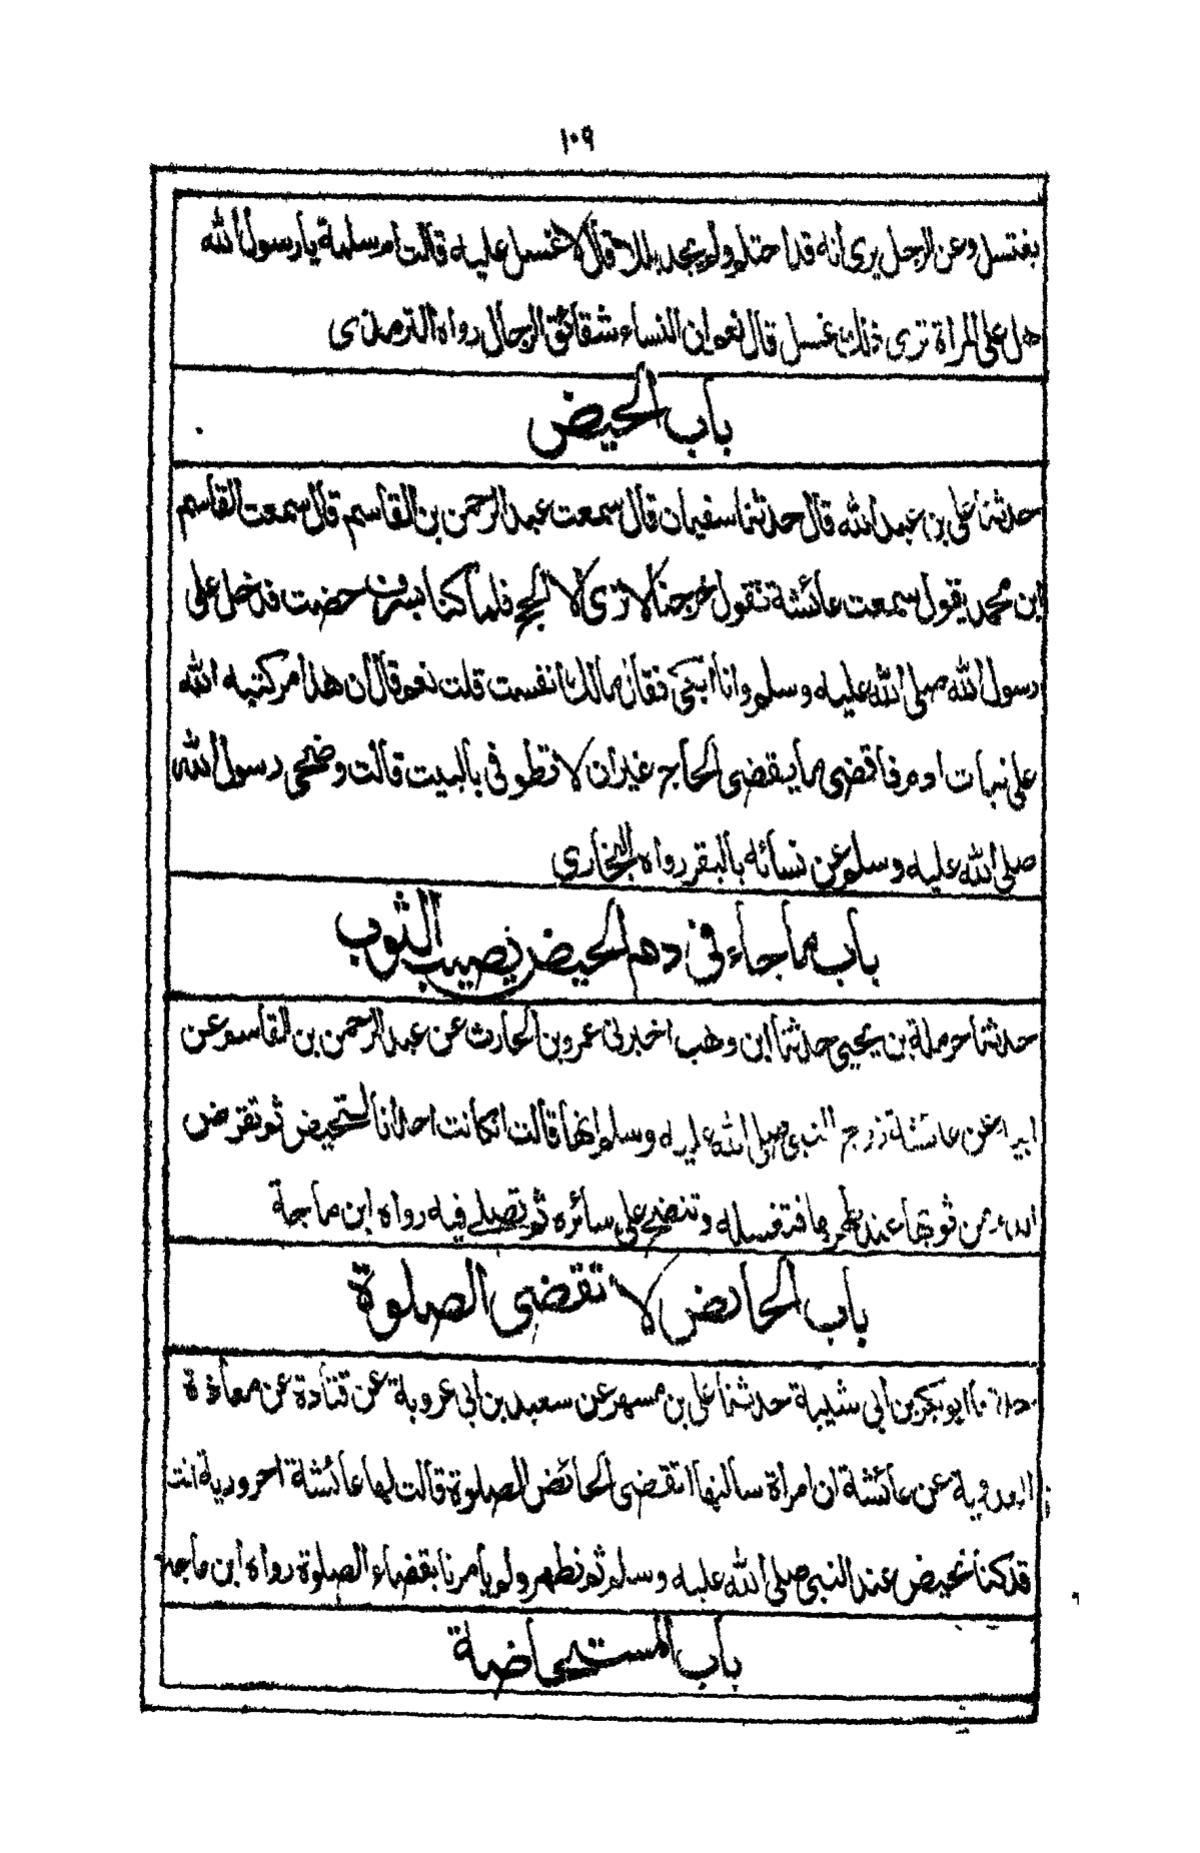 ١٠٩
يغتسل وعن الرجل يرى أنه قد احتلم ولم يجد بللا قال لا غسل عليه قالت ام سلمة يا رسول الله
هل على المراة ترى ذلك غسل قال نعم ان النساء شقائق الرجال رواه الترمذى
باب الحيض
حدثنا على بن عبد الله قال حدثنا سفيان قال سمعت عبد الرحمن بن القاسم قال سمعت القاسم
ابن محمد يقول سمعت عائشة تقول خرجنا لا نرى الا الحج فلما كنا بسرف حضت فدخل على
رسول الله صلى الله عليه وسلم وانا ابكى فقال مالك انفست قلت نعم قال ان هذا امر كتبه الله
على بنات ادم فاقضى ما يقضى الحاج غير ان لا تطوفى بالبيت قالت وضحى رسول الله
صلى الله عليه وسلم عن نسائه بالبقر رواه البخاري
باب ما جاء فى دم الحيض يصيب الثوب
حدثنا حرملة بن يحيى حدثنا ابن وهب اخبرنى عمرو بن الحارث عن عبد الرحمن بن القاسم عن
ابيه عن عائشة زوج النبى صلى الله عليه وسلم انها قالت ان كانت احدانا لتحيض ثم تقرض
الدم من ثوبها عند طهرها فتغسله وتنضح على سائره ثم تصلى فيه رواه ابن ماجة
باب الحائض لا تقضى الصلوة
حدثنا ابو بكر بن ابي شيبة حدثنا على بن مسهر عن سعيد بن ابى عروبة عن قتادة عن معاذة
العدوية عن عائشة ان امراة سالتها اتقضى الحائض الصلوة قالت لها عائشة احرورية انت
قد كنا نحيض عند النبى صلى الله عليه وسلم ثم نطهر ولم يأمرنا بقضاء الصلوة رواه ابن ماجة
باب المستحاضة